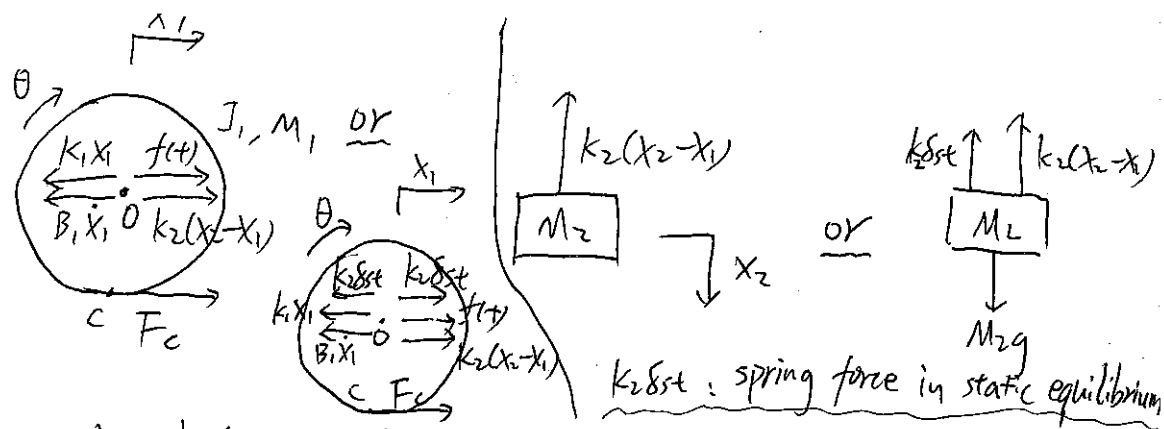 x1
θ
J1, M1 or
K1x1 f(t)
B1ẋ1 O k2(x2-x1)
C Fc
x1
θ
k2δst k2δst
k1x1 f(t)
B1ẋ1 O k2(x2-x1)
C Fc
k2(x2-x1)
M2
x2
or
k2δst k2(x2-x1)
M2
M2g
k2δst : spring force in static equilibrium